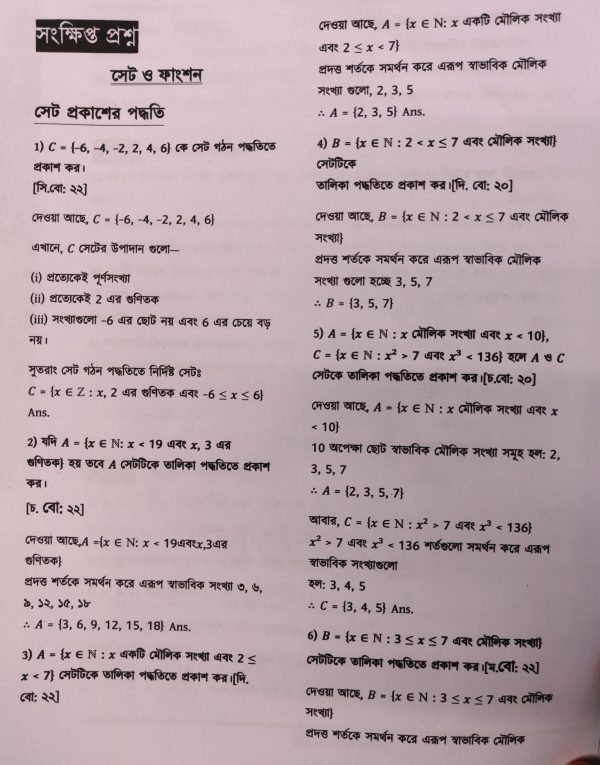 সংক্ষিপ্ত প্রশ্ন
সেট ও ফাংশন
সেট প্রকাশের পদ্ধতি
1) C = {-6, -4, -2, 2, 4, 6} কে সেট গঠন পদ্ধতিতে
প্রকাশ কর।
[সি.বো: ২২]
দেওয়া আছে, C = {-6, -4, -2, 2, 4, 6}
এখানে, C সেটের উপাদান গুলো—
(i) প্রত্যেকেই পূর্ণসংখ্যা
(ii) প্রত্যেকেই 2 এর গুণিতক
(iii) সংখ্যাগুলো -6 এর ছোট নয় এবং 6 এর চেয়ে বড়
নয়।
সুতরাং সেট গঠন পদ্ধতিতে নির্দিষ্ট সেটঃ
C = {x ∈ Z : x, 2 এর গুণিতক এবং -6 ≤ x ≤ 6}
Ans.
2) যদি A = {x ∈ N: x < 19 এবং x, 3 এর
গুণিতক} হয় তবে A সেটটিকে তালিকা পদ্ধতিতে প্রকাশ
কর।
[চ. বো: ২২]
দেওয়া আছে,A ={x ∈ N: x < 19এবংx,3এর
গুণিতক}
প্রদত্ত শর্তকে সমর্থন করে এরূপ স্বাভাবিক সংখ্যা ৩, ৬,
৯, ১২, ১৫, ১৮
∴ A = {3, 6, 9, 12, 15, 18} Ans.
3) A = {x ∈ N : x একটি মৌলিক সংখ্যা এবং 2 ≤
x < 7} সেটটিকে তালিকা পদ্ধতিতে প্রকাশ কর।[দি.
বো: ২২]
দেওয়া আছে, A = {x ∈ N: x একটি মৌলিক সংখ্যা
এবং 2 ≤ x < 7}
প্রদত্ত শর্তকে সমর্থন করে এরূপ স্বাভাবিক মৌলিক
সংখ্যা গুলো, 2, 3, 5
∴ A = {2, 3, 5} Ans.
4) B = {x ∈ N : 2 < x ≤ 7 এবং মৌলিক সংখ্যা}
সেটটিকে
তালিকা পদ্ধতিতে প্রকাশ কর।[দি. বো: ২০]
দেওয়া আছে, B = {x ∈ N : 2 < x ≤ 7 এবং মৌলিক
সংখ্যা}
প্রদত্ত শর্তকে সমর্থন করে এরূপ স্বাভাবিক মৌলিক
সংখ্যা গুলো হচ্ছে 3, 5, 7
∴ B = {3, 5, 7}
5) A = {x ∈ N : x মৌলিক সংখ্যা এবং x < 10},
C = {x ∈ N : x² > 7 এবং x³ < 136} হলে A ও C
সেটকে তালিকা পদ্ধতিতে প্রকাশ কর।[চ.বো: ২০]
দেওয়া আছে, A = {x ∈ N : x মৌলিক সংখ্যা এবং x
< 10}
10 অপেক্ষা ছোট স্বাভাবিক মৌলিক সংখ্যা সমূহ হল: 2,
3, 5, 7
∴ A = {2, 3, 5, 7}
আবার, C = {x ∈ N : x² > 7 এবং x³ < 136}
x² > 7 এবং x³ < 136 শর্তগুলো সমর্থন করে এরূপ
স্বাভাবিক সংখ্যাগুলো
হল: 3, 4, 5
∴ C = {3, 4, 5} Ans.
6) B = {x ∈ N : 3 ≤ x ≤ 7 এবং মৌলিক সংখ্যা}
সেটটিকে তালিকা পদ্ধতিতে প্রকাশ কর।[ম.বো: ২২]
দেওয়া আছে, B = {x ∈ N : 3 ≤ x ≤ 7 এবং মৌলিক
সংখ্যা}
প্রদত্ত শর্তকে সমর্থন করে এরূপ স্বাভাবিক মৌলিক